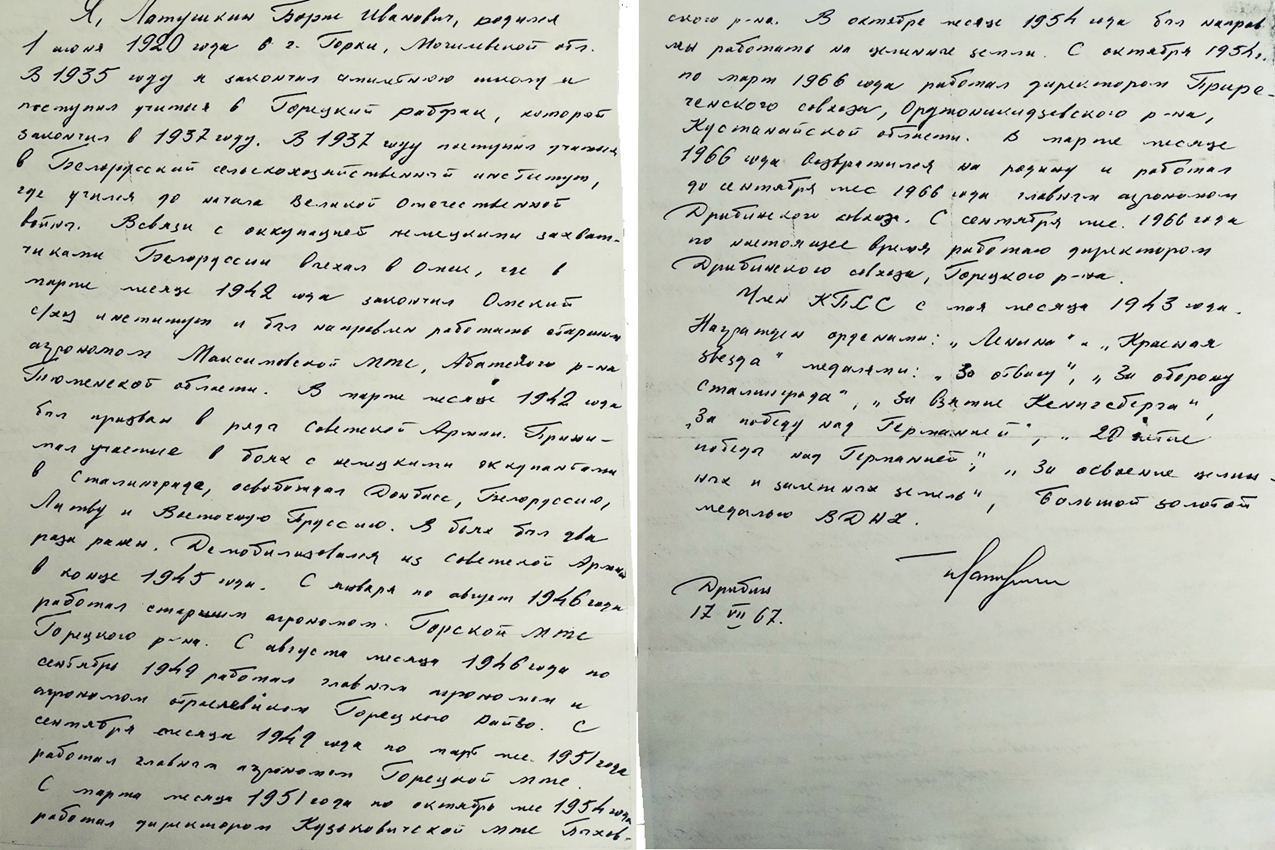 Я, Латушкин Борис Иванович, родился
1 июня 1920 года в г. Горки, Могилевской обл.
В 1935 году я закончил семилетнюю школу и
поступил учиться в Горецкий рабфак, который
закончил в 1937 году. В 1937 году поступил учиться
в Белорусский сельскохозяйственный институт,
где учился до начала Великой Отечественной
войны. Всвязи с оккупацией немецкими захват-
чиками Белоруссии выехал в Омск, где в
марте месяце 1942 года закончил Омский
с/хоз институт и был направлен работать старшим
агрономом Максимовской МТС, Абатского р-на
Тюменской области. В марте месяце 1942 года
был призван в ряды Советской Армии. Прини-
мал участие в боях с немецкими оккупантами
в Сталинграде, освобождал Донбасс, Белоруссию,
Литву и Восточную Пруссию. В боях был два
раза ранен. Демобилизовался из Советской Армии
в конце 1945 года. С января по август 1946 года
работал старшим агрономом Горской МТС
Горецкого р-на. С августа месяца 1946 года по
сентябрь 1949 работал главным агрономом и
агрономом отраслевиком Горецкого Райзо. С
сентября месяца 1949 года по март мес. 1951 года
работал главным агрономом Горецкой МТС.
С марта месяца 1951 года по октябрь мес 1954 года
работал директором Кузьковичской МТС Быхов-
ского р-на. В октябре месяце 1954 года был направ
мы работать на целинные земли. С октября 1954 г.
по март 1966 года работал директором Прире-
ченского совхоза, Орджоникидзевского р-на,
Кустанайской области. В марте месяце
1966 года возвратился на родину и работал
до сентября мес 1966 года главным агрономом
Дрибинского совхоза. С сентября мес. 1966 года
по настоящее время работаю директором
Дрибинского совхоза, Горецкого р-на.
Член КПСС с мая месяца 1943 года.
Награжден орденами: „Ленина" и „Красная
звезда" медалями: „За отвагу", „За оборону
Сталинграда", „За взятие Кенигсберга",
„За победу над Германией", „20 летие
победы над Германией", „За освоение целин-
ных и залежных земель", Большой золотой
медалью ВДНХ.
Дрибин
17 VII 67.